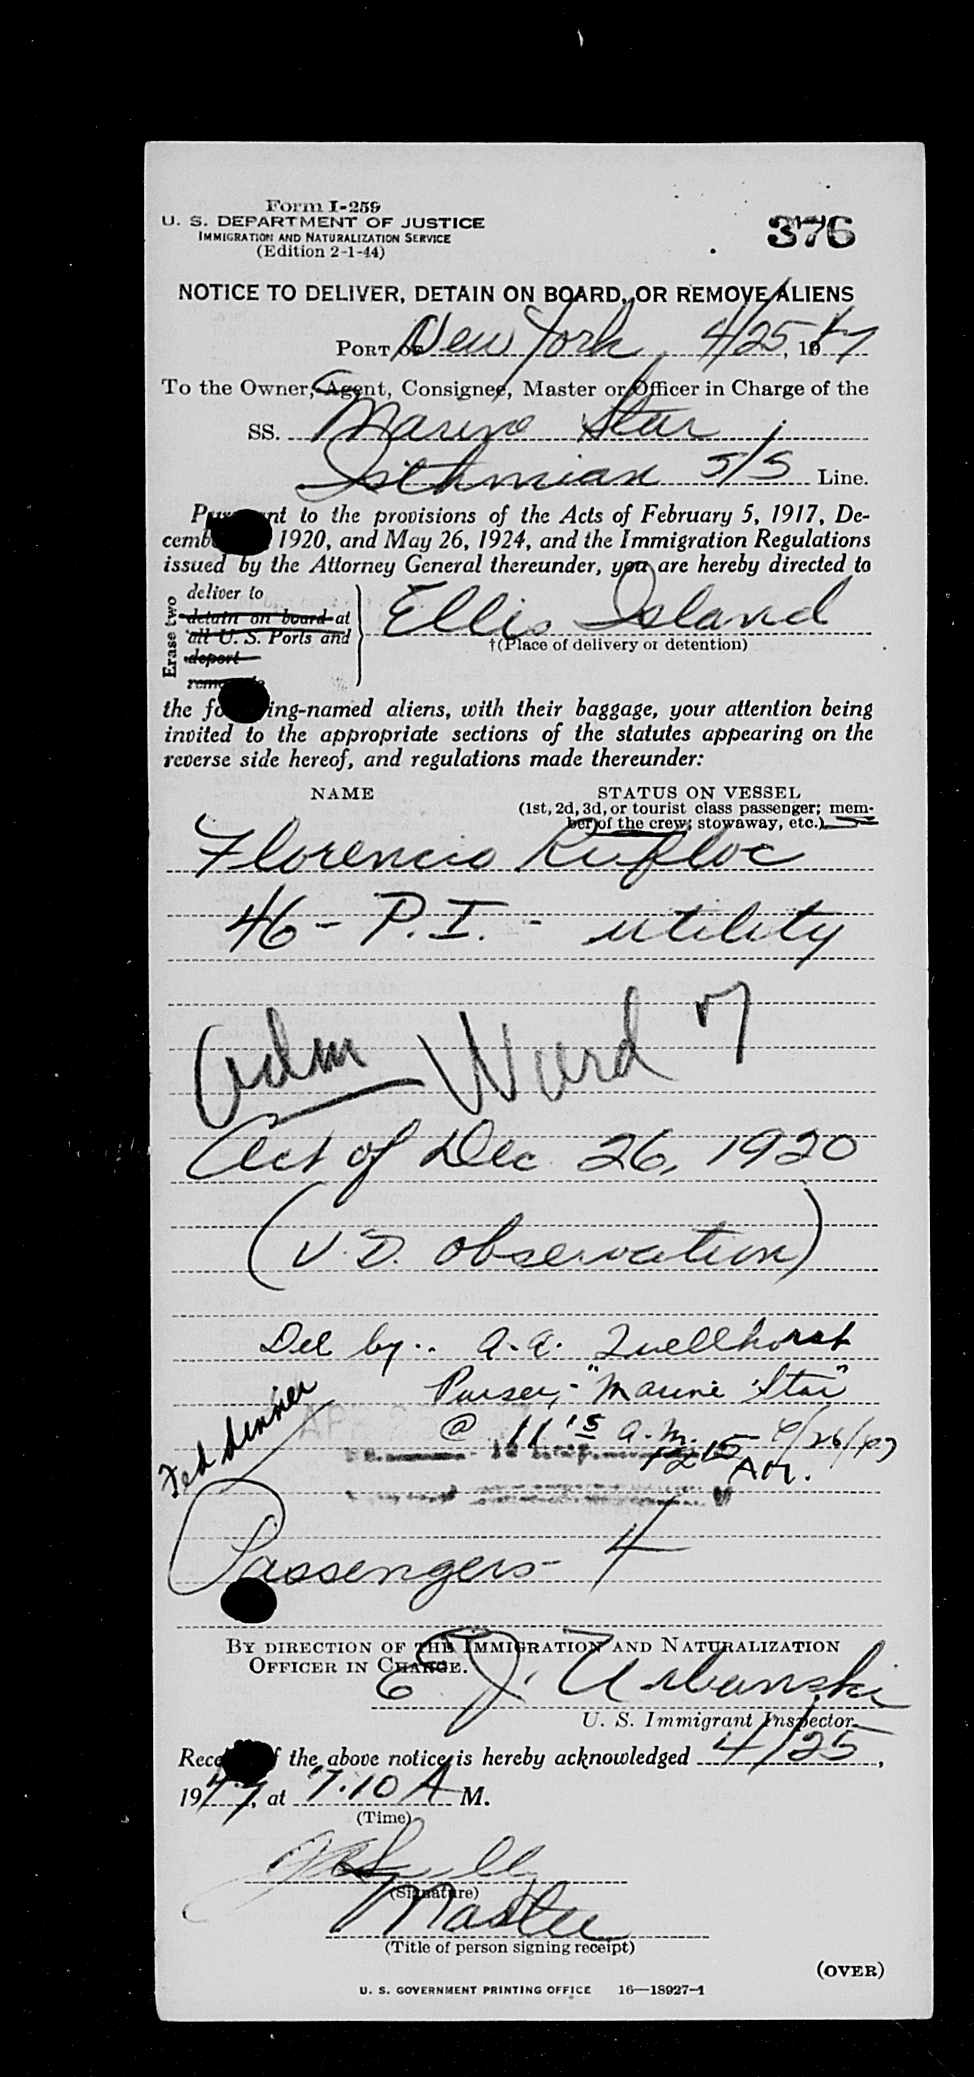 Form I-259
U. S. DEPARTMENT OF JUSTICE
IMMIGRATION AND NATURALIZATION SERVICE
(Edition 2-1-44)
376
NOTICE TO DELIVER, DETAIN ON BOARD, OR REMOVE ALIENS
PORT OF New York, 4/25, 1947
To the Owner, Agent, Consignee, Master or Officer in Charge of the
SS. Marine Star
Isthmian S/S Line.
Pursuant to the provisions of the Acts of February 5, 1917, De-
cemb 1920, and May 26, 1924, and the Immigration Regulations
issued by the Attorney General thereunder, you are hereby directed to
Erase two
deliver to
detain on board at
all U. S. Ports and
deport
remove
Ellis Island
†(Place of delivery or detention)
the following-named aliens, with their baggage, your attention being
invited to the appropriate sections of the statutes appearing on the
reverse side hereof, and regulations made thereunder:
NAME STATUS ON VESSEL
(1st, 2d, 3d, or tourist class passenger; mem-
ber of the crew; stowaway, etc.)
Florencio
46 - P.I. - utility
Adm Ward 7
Act of Dec 26, 1920
(V.D. observation)
Del by.. A.A.
Purser, - "Marine Star"
@ 11 15 a.m. 4/26/47
1215
Fed dinner
Passengers - 4
BY DIRECTION OF THE IMMIGRATION AND NATURALIZATION
OFFICER IN CHARGE.
E J. Urbanski
U. S. Immigrant Inspector.
Receipt of the above notice is hereby acknowledged 4/25,
1947, at 7:10 A M.
(Time)
(Signature)
Master
(Title of person signing receipt)
(OVER)
U. S. GOVERNMENT PRINTING OFFICE 16—18927-1